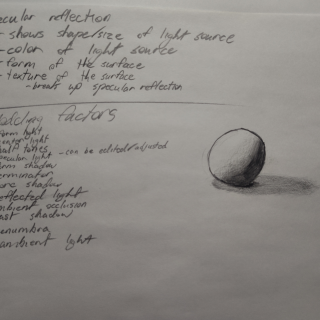 ecular reflection
- shows shape/size of light source
- color of light source
- form of the surface
- texture of the surface
- breaks up specular reflection
factors
form light
light
tones
ecular light - can be edited/adjusted
orm shadow
erminator
ore shadow
reflected light
mbient occlusion
ast shadow
enumbra
ambient light